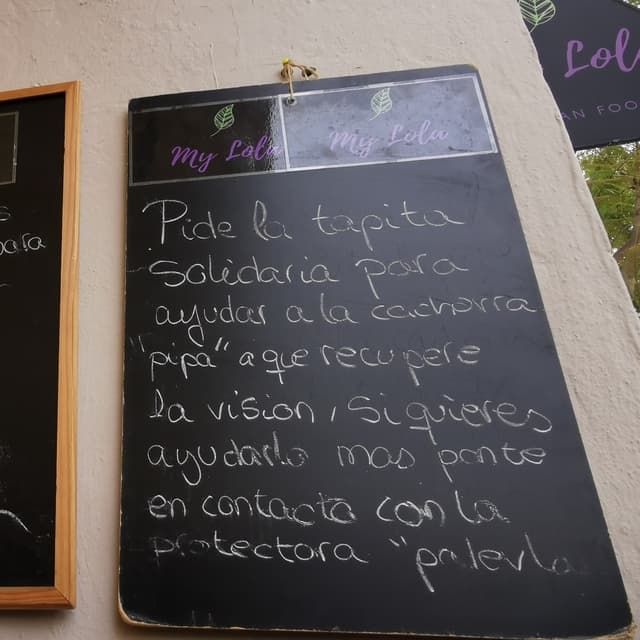 My Lola My Lola
Pide la tapita
Solidaria para
ayudar a la cachorra
"pipa" a que recupere
la vision, si quieres
ayudarla mas ponte
en contacto con la
protectora "prlevla
para
Lol
AN FOO